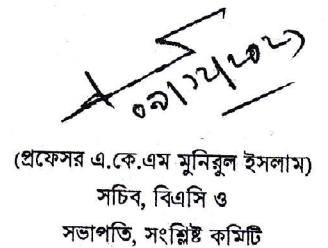 ০৯/১২/২০২১
(প্রফেসর এ.কে.এম মুনিরুল ইসলাম)
সচিব, বিএসি ও
সভাপতি, সংশ্লিষ্ট কমিটি